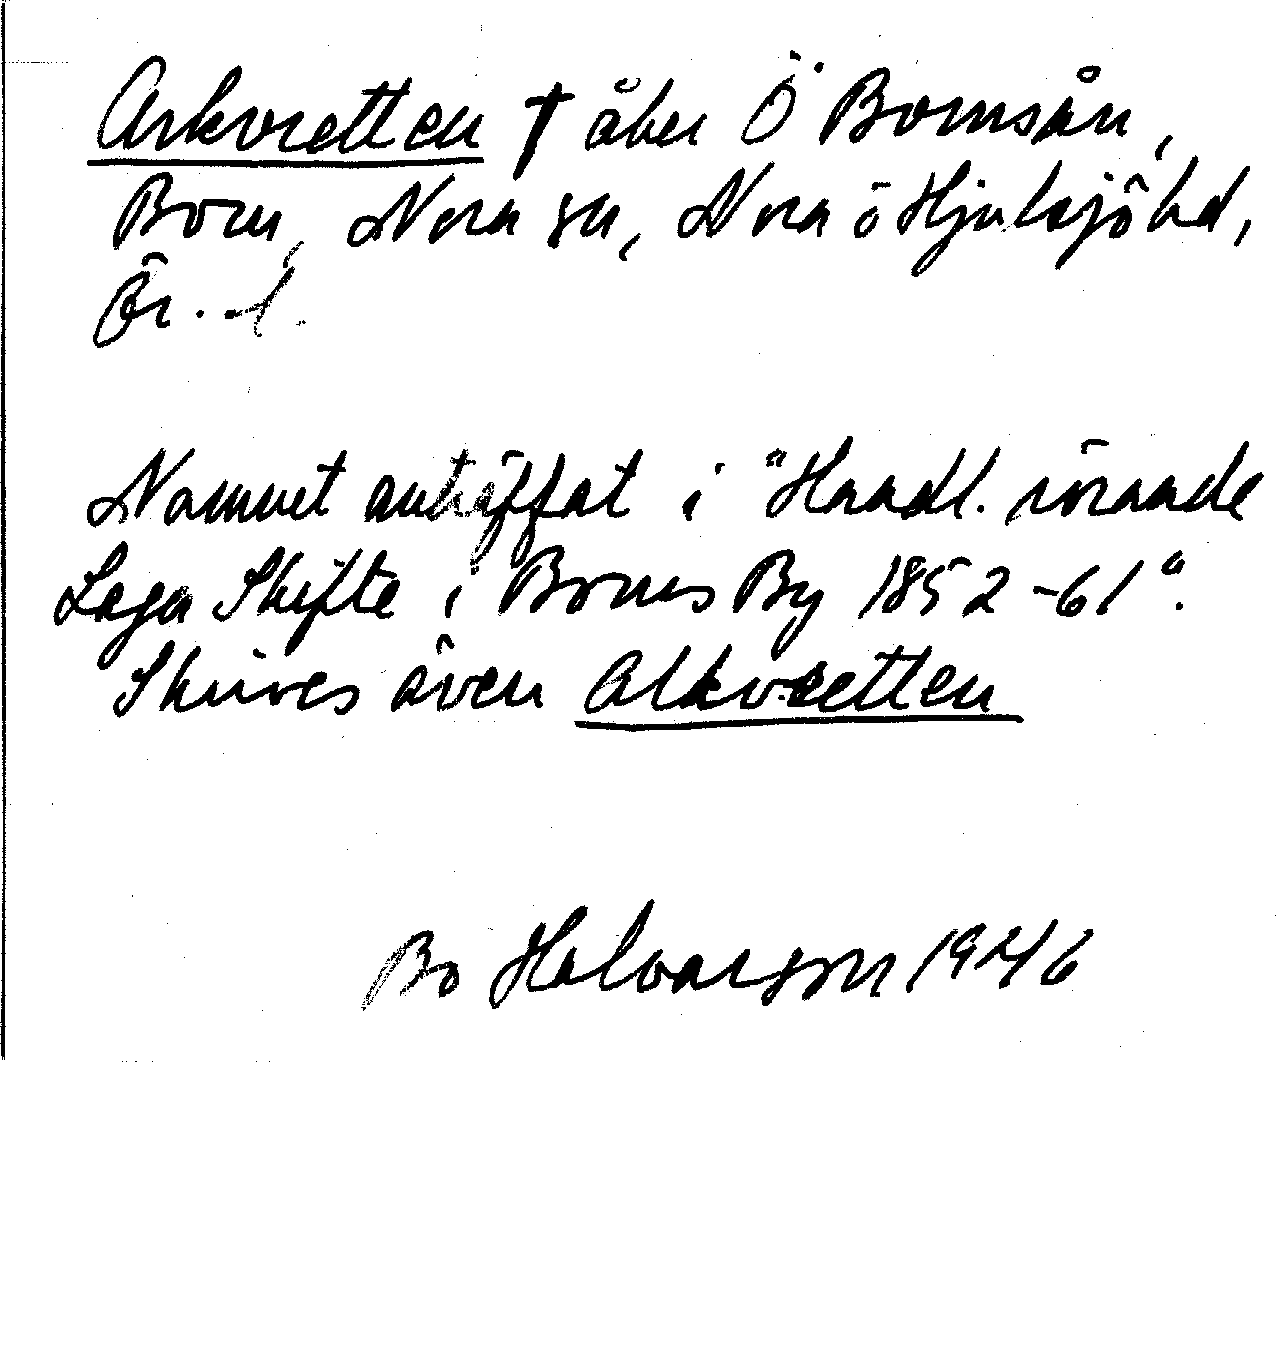 Arkvretten † åker Ö Bornsån,
Born, Nora sn, Nora o Hjulsjö bd,
Ör. l.
Namnet anträffat i "Handl. rörande
Laga Skifte i Borns By 1852-61".
Skrives även Alkvretten
Bo Halvarson 1946